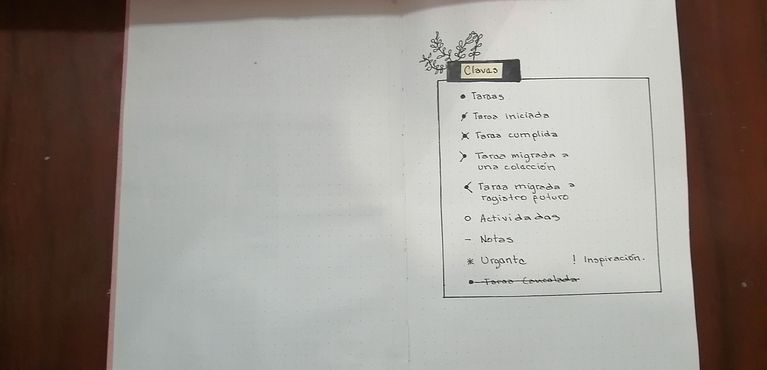 Claves
• Tareas
Tarea iniciada
x Tarea cumplida
> Tarea migrada a
una colección
< Tarea migrada a
registro futuro
o Actividades
- Notas
* Urgente ! Inspiración.
• Tarea Cancelada